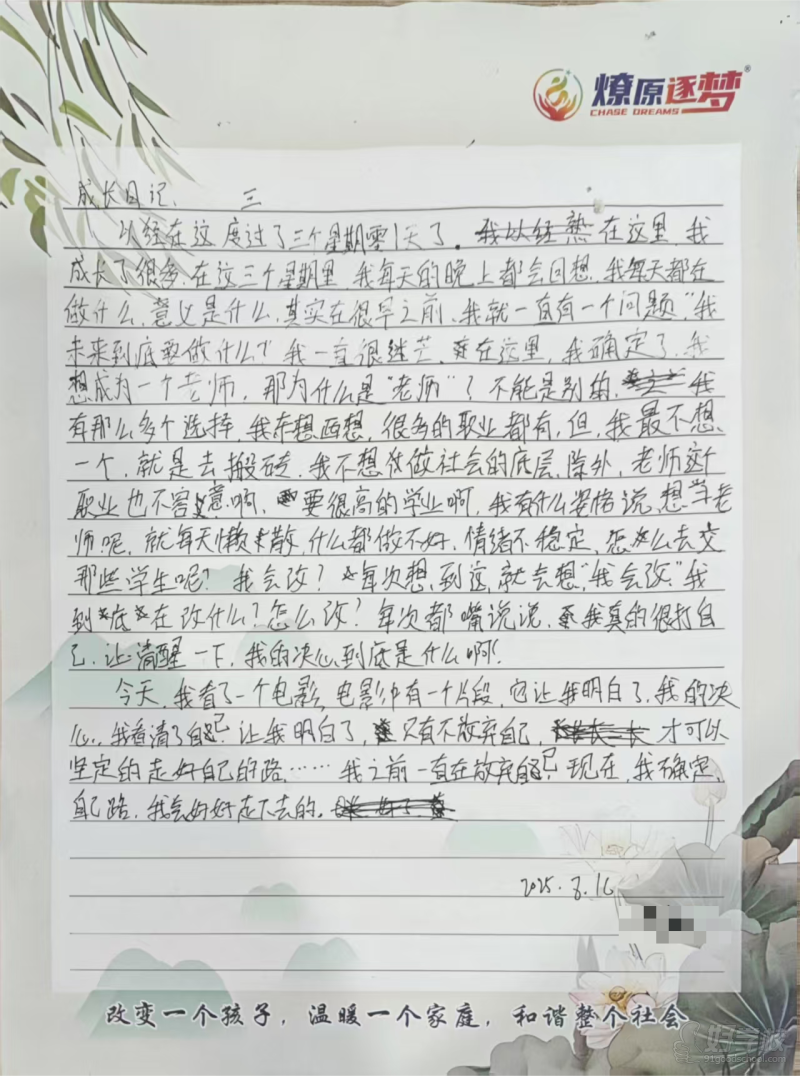 燎原逐梦®
CHASE DREAMS
成长日记. 三
以经在这度过了三个星期零1天了。在这里,我
成长了很多,在这三个星期里,我每天的晚上都会回想,我每天都在
做什么,意义是什么,其实在很早之前,我就一直有一个问题,"我
未来到底要做什么?我一直很迷茫,在这里,我确定了,我
想成为一个老师,那为什么是"老师"?不能是别的,我
有那么多个选择,我东想西想,很多的职业都有,但,我最不想
一个,就是去搬砖,我不想做社会的底层,除外,老师这个
职业也不容意啊,要很高的学业啊,我有什么资格说,想当老
师呢,就每天懒散,什么都做不好,情绪不稳定,怎么去交
那些学生呢?我会改?每次想到这,就会想,"我会改"我
到底在改什么?怎么改?每次都嘴说说,我真的很打自
己,让清醒一下,我的决心到底是什么啊!
今天,我看了一个电影,电影中有一个片段,它让我明白了,我的决
心,我看清了自己,让我明白了,只有不放弃自己,才可以
坚定的走好自己的路……我之前一直在放弃自己,现在,我确定,
自己路,我会好好走下去的。
2025.8.16
改变一个孩子,温暖一个家庭,和谐整个社会
好学校
91goodschool.com